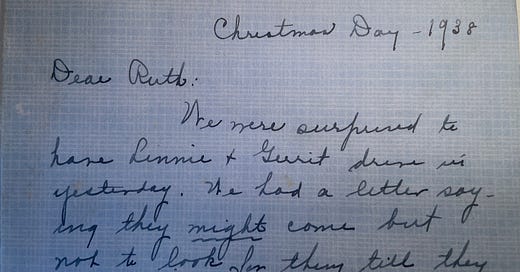 Christmas Day - 1938
Dear Ruth:
We were surprised to
have Linnie & Gerrit drive in
yesterday. We had a letter say-
ing they might come but
not to look for them till they